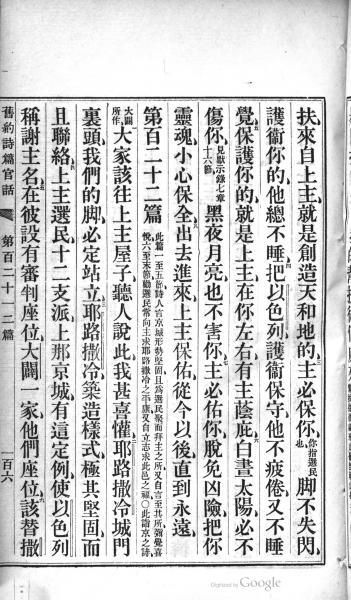 扶來自上主就是創造天和地的主必保你你指選民也脚不失閃
護衞你的他總不睡把以色列護衞保守他不疲倦又不睡
覺保護你的就是上主在你左右有主蔭庇白晝太陽必不
傷你見默示錄七章十六節黑夜月亮也不害你主必佑你脫免凶險把你
靈魂小心保全出去進來上主保佑從今以後直到永遠
第百二十二篇此篇一至五節詩人言京城形勢堅固且爲選民聚而拜主之所又自言至其所彌覺喜悅六至末節勸選民常向主求耶路撒冷之平康又自立志求此邑之福〇此詣京之詩
大闢所作大家該往上主屋子聽人說此我甚喜懽耶路撒冷城門
裏頭我們的脚必定站立耶路撒冷築造樣式極其堅固而
且聯絡上主選民十二支派上那京城有這定例使以色列
稱謝主名在彼設有審判座位大闢一家他們座位該替撒
舊約詩篇官話 第百二十一 二篇 一百六
Digitized by Google